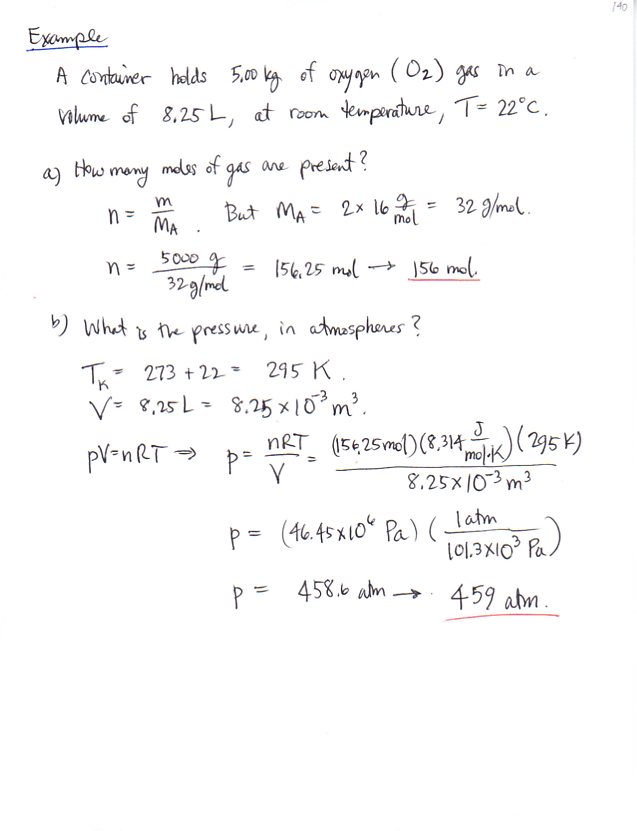 140
Example
A container holds 5.00 kg of oxygen (O2) gas in a
volume of 8.25 L, at room temperature, T = 22°C.
a) How many moles of gas are present?
n = m/MA . But MA = 2 × 16 g/mol = 32 g/mol.
n = 5000 g / 32 g/mol = 156.25 mol → 156 mol.
b) What is the pressure, in atmospheres?
TK = 273 + 22 = 295 K.
V = 8.25 L = 8.25 × 10⁻³ m³.
pV = nRT ⇒ p = nRT/V = (156.25 mol)(8.314 J/mol·K)(295 K) / 8.25 × 10⁻³ m³
p = (46.45 × 10⁶ Pa) (1 atm / 101.3 × 10³ Pa)
p = 458.6 atm → 459 atm.